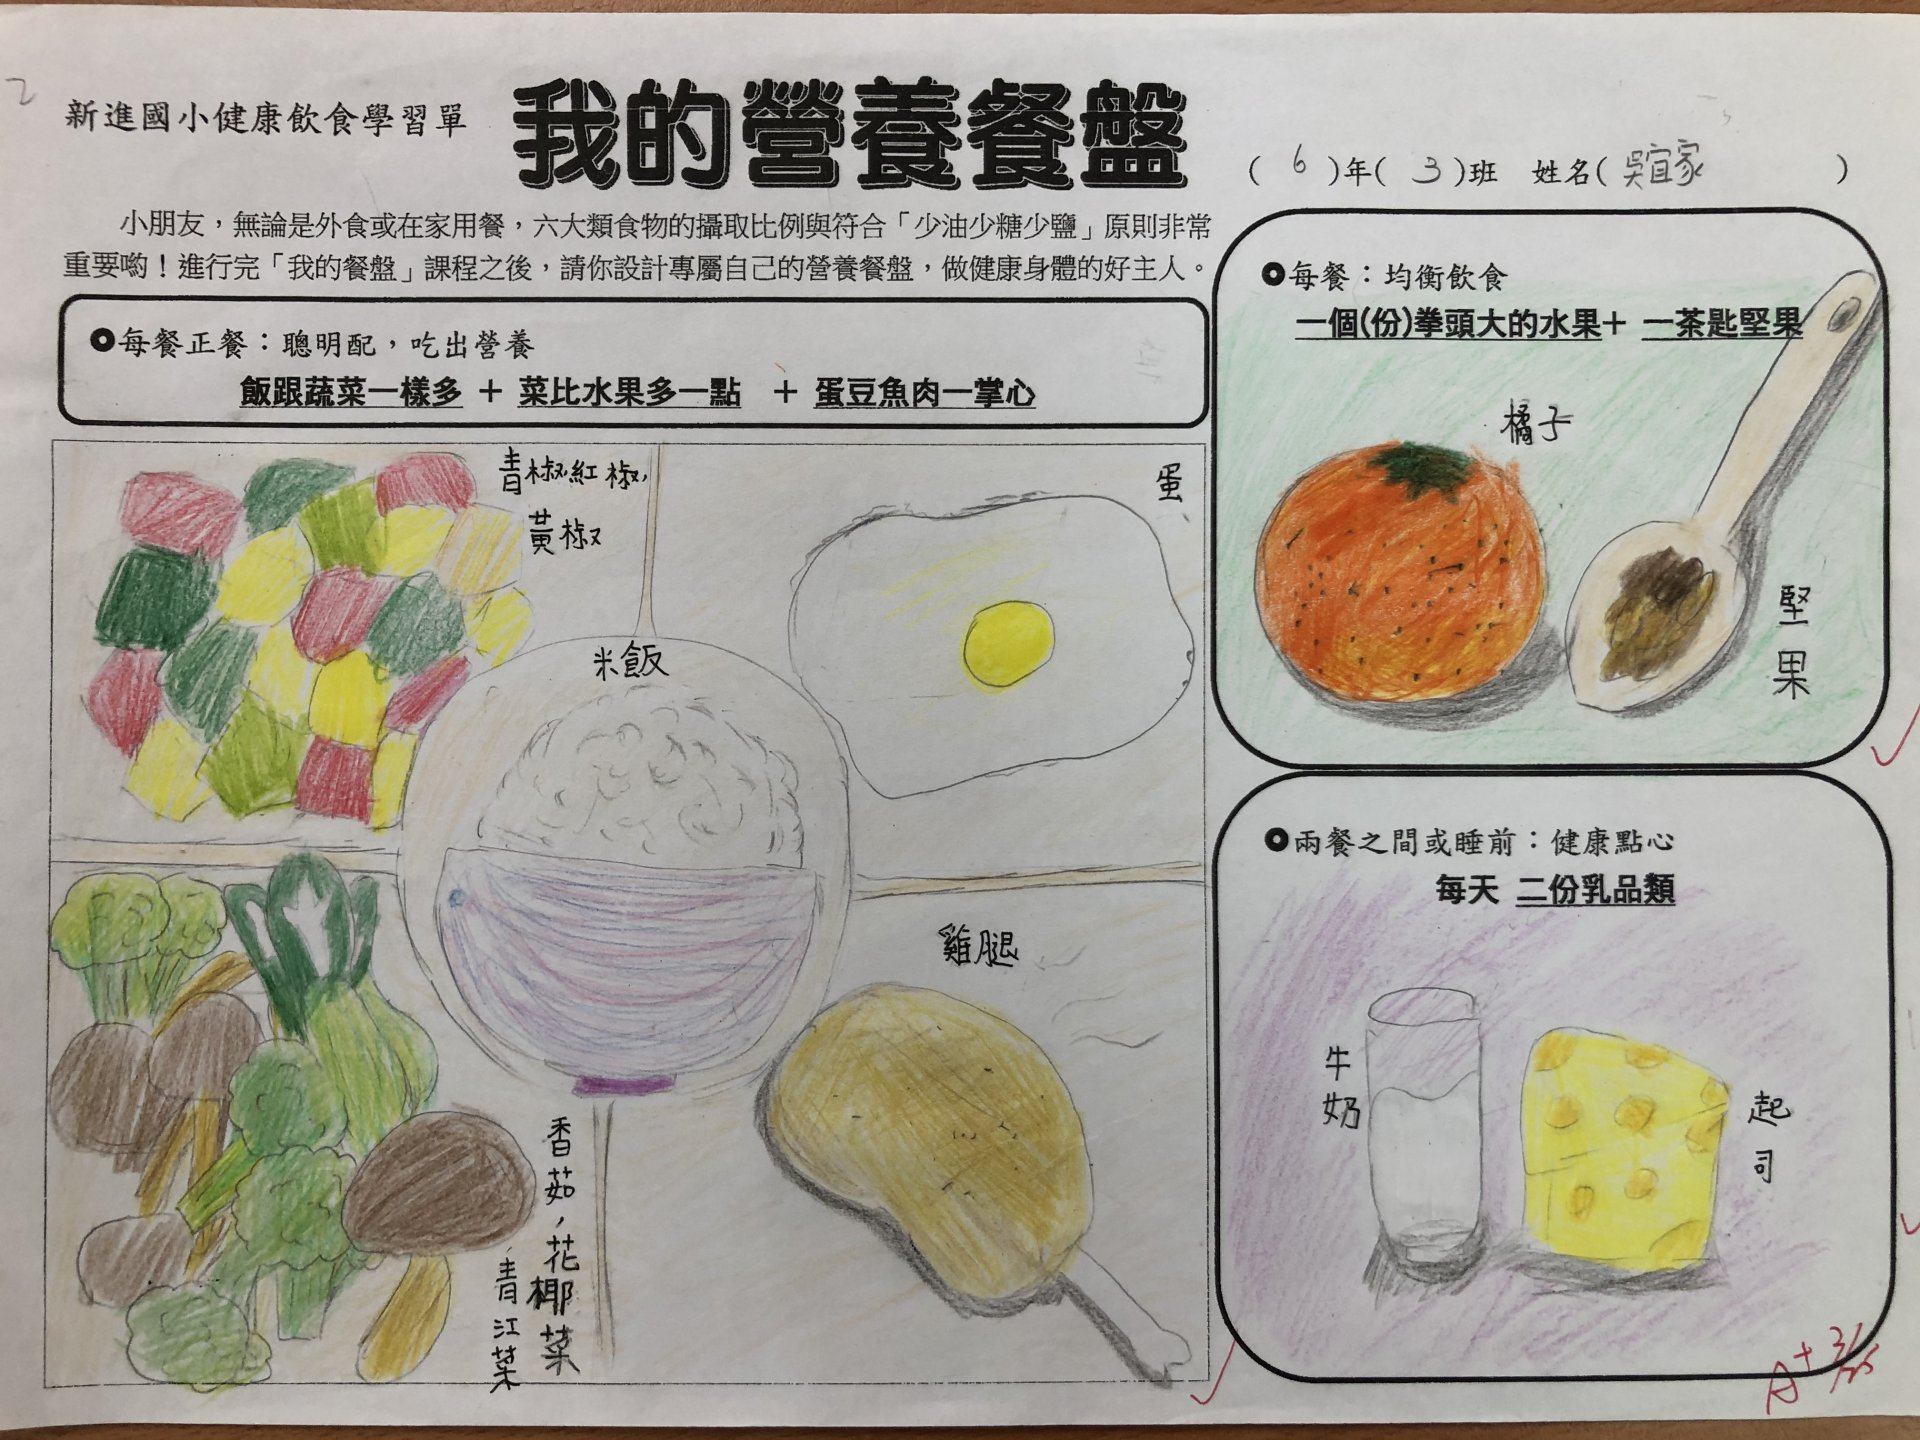 2
新進國小健康飲食學習單
我的營養餐盤
( 6 )年( 3 )班 姓名( 吳宜家 )
小朋友，無論是外食或在家用餐，六大類食物的攝取比例與符合「少油少糖少鹽」原則非常
重要喲！進行完「我的餐盤」課程之後，請你設計專屬自己的營養餐盤，做健康身體的好主人。
每餐正餐：聰明配，吃出營養
飯跟蔬菜一樣多 + 菜比水果多一點 + 蛋豆魚肉一掌心
青椒,紅椒,
黃椒
蛋
米飯
雞腿
香菇,花椰菜
,青江菜
每餐：均衡飲食
一個(份)拳頭大的水果+ 一茶匙堅果
橘子
堅果
兩餐之間或睡前：健康點心
每天 二份乳品類
牛奶
起司
A+ 3/25